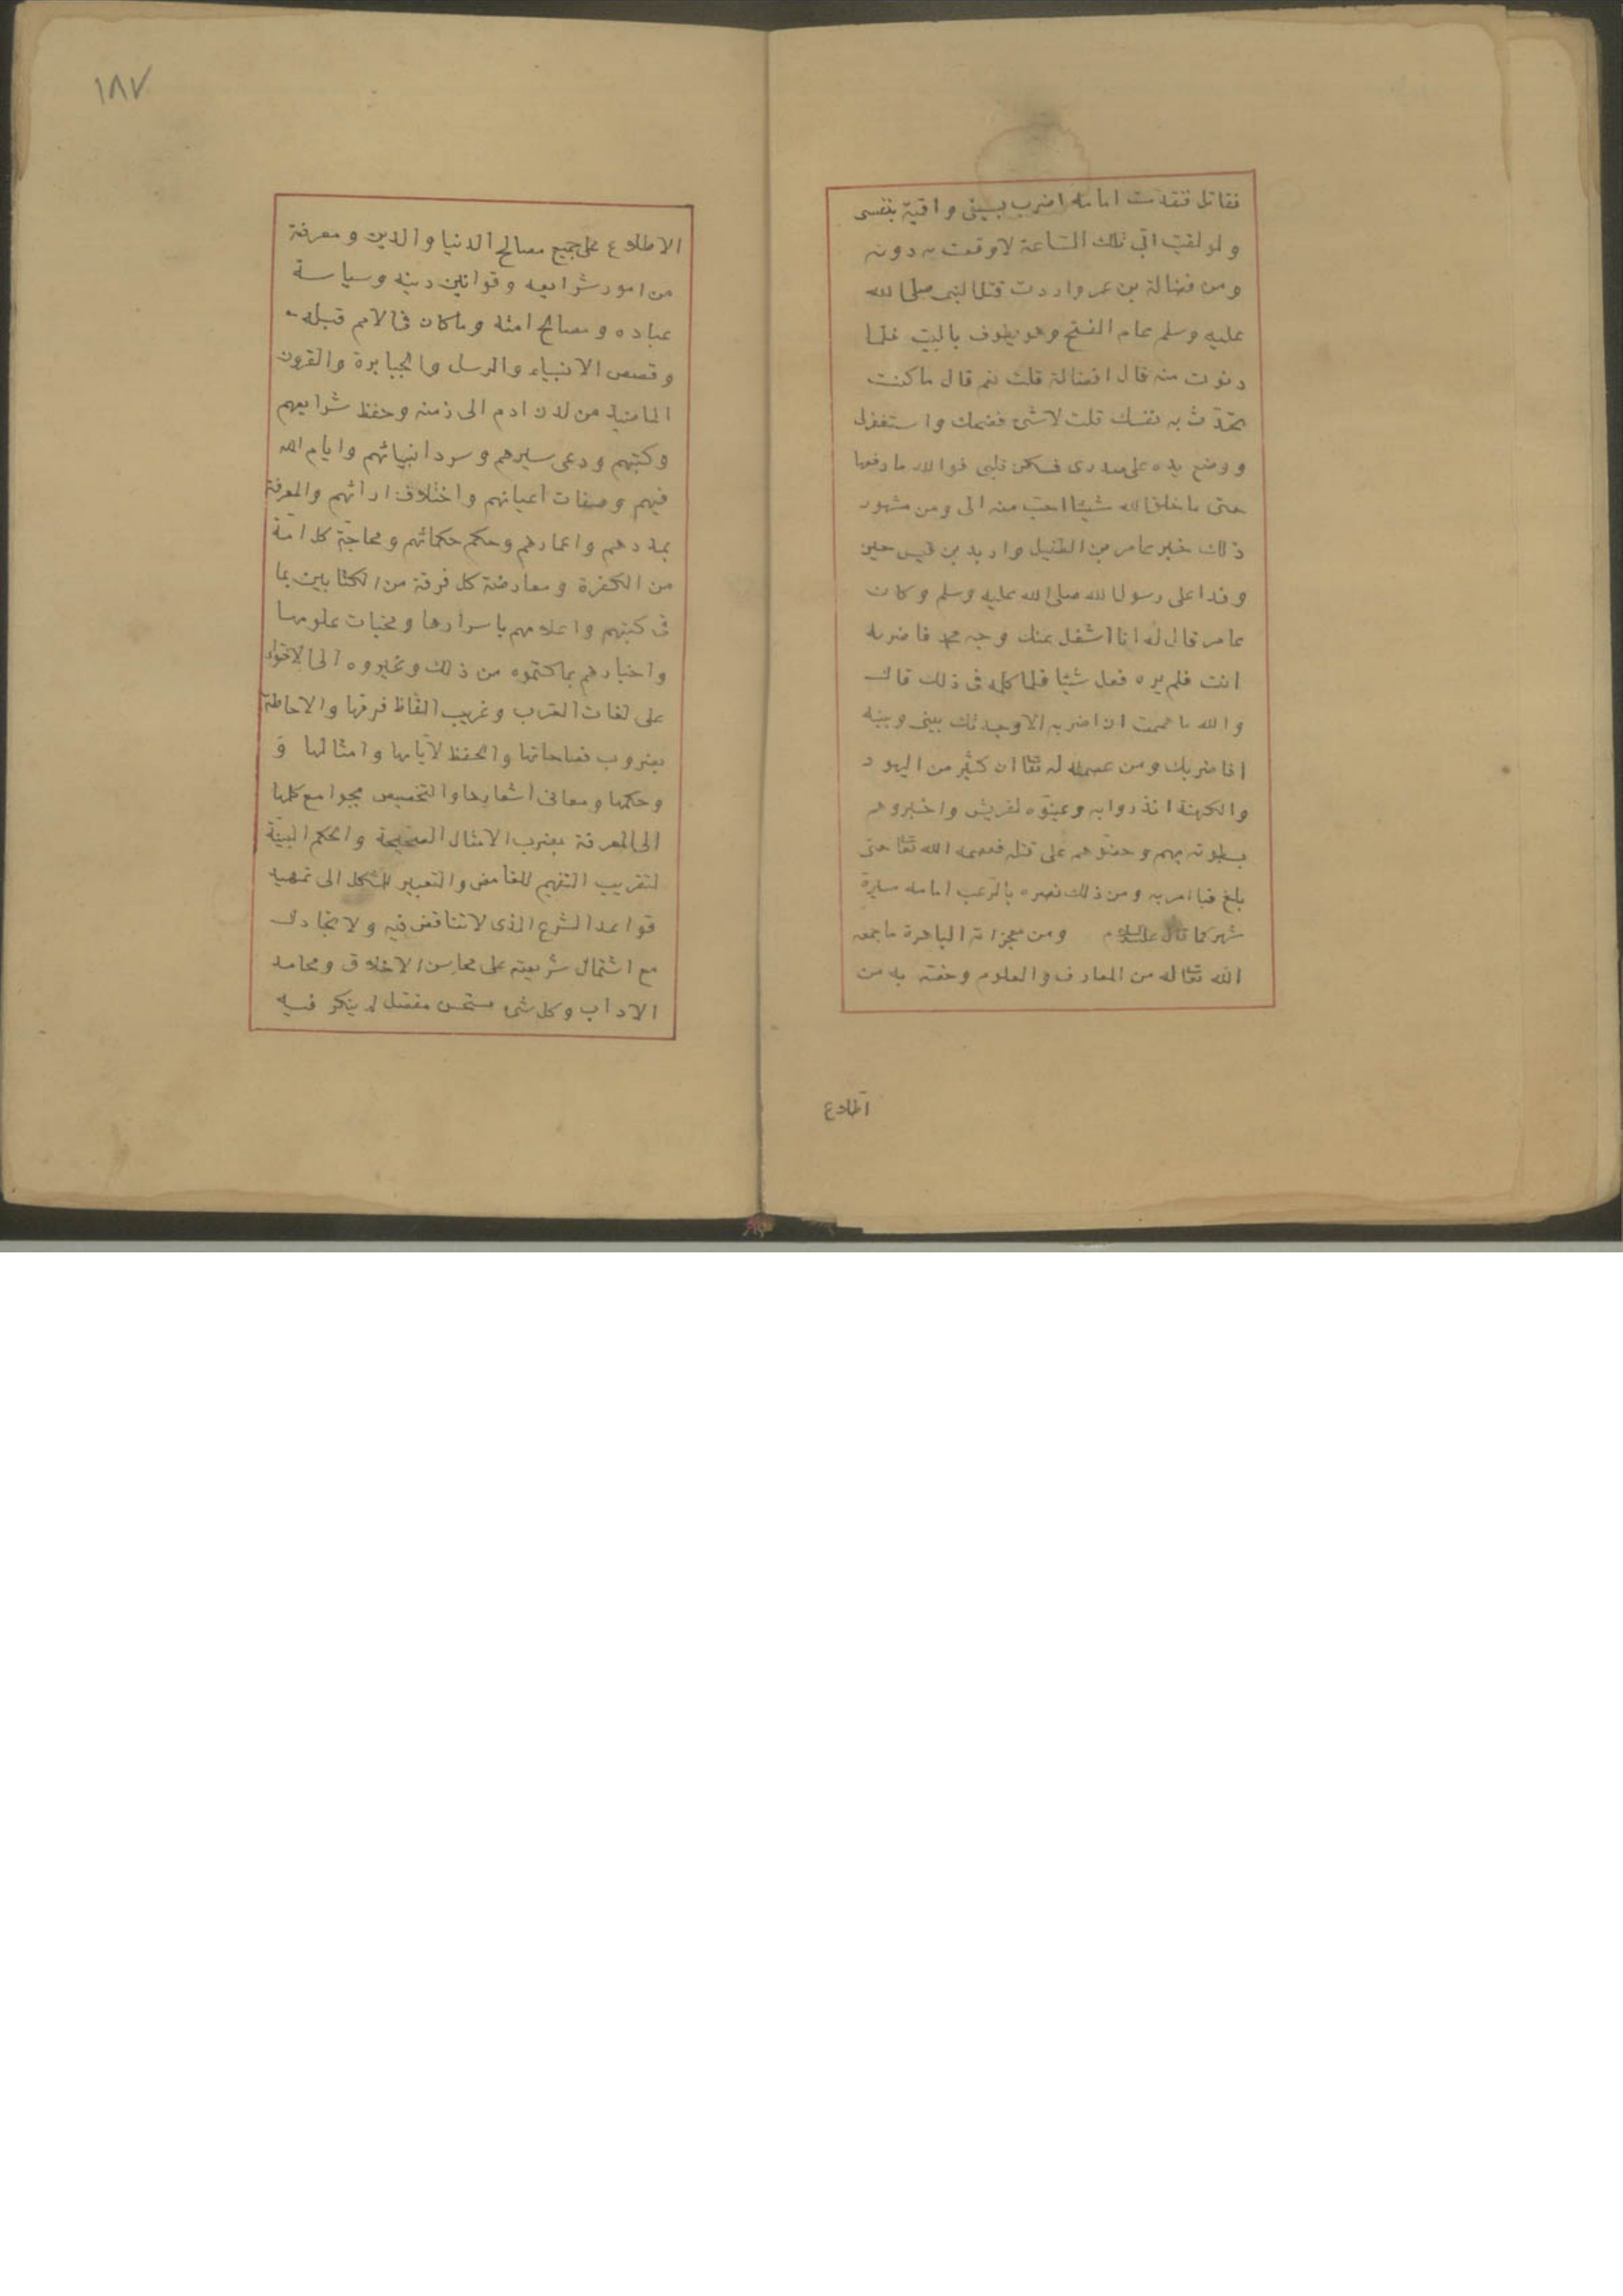 فقاتل فتقدمت امامه اضرب بسيفى واقيه بنفسى
ولو لقيت ابى تلك الساعة لاوقعت به دونه
ومن فضالة بن عمر واردت قتل النبى صلى الله
عليه وسلم عام الفتح وهو يطوف بالبيت فلما
دنوت منه قال افضالة قلت نعم قال ما كنت
تحدّث به نفسك قلت لا شئ فضحك واستغفرلى
ووضع يده على صدرى فسكن قلبى فوالله ما رفعها
حتى ما خلق الله شيئا احبّ منه الى ومن مشهور
ذلك خبر عامر بن الطفيل واربد بن قيس حين
وفدا على رسول الله صلى الله عليه وسلم وكان
عامر قال له انا اشغل عنك وجه محمد فاضربه
انت فلم يره فعل شيئا فلما كلمه فى ذلك قال
والله ما هممت ان اضربه الا وجدتك بينى وبينه
افاضربك ومن عصمته له تعا ان كثير من اليهود
والكهنة انذروا به وعينوه لقريش واخبروهم
بسطوته بهم وحضّوهم على قتله فعصمه الله تعا حتى
بلغ فيا امر به ومن ذلك نصره بالرعب امامه مسيرة
شهر كما قال عليه السلام ومن معجزاته الباهرة ما جمعه
الله تعا له من المعارف والعلوم وخصّه به من
اطلاع
١٨٧
الاطلاع على جميع مصالح الدنيا والدين ومعرفة
من امور شرايعه وقوانين دينه وسياسة
عباده ومصالح امته وما كان فى الامم قبله
وقصص الانبياء والرسل والجبابرة والقرون
الماضية من لدن ادم الى زمنه وحفظ شرايعهم
وكتبهم ودعى سيرهم وسرد انبيائهم وايام الله
فيهم وصفات اعيانهم واختلاف ارائهم والمعرفة
بمددهم واعمارهم وحكم حكمائهم ومحاجّة كل امّة
من الكفرة ومعارضة كل فرقة من الكتابيين بما
فى كتبهم واعلامهم باسرارها ومخبات علومها
واخبارهم بما كتموه من ذلك وغيروه الى الاحتواء
على لغات العرب وغريب الفاظ فرقها والاحاطة
بضروب فصاحاتها والحفظ لآيامها وامثالها و
وحكمها ومعانى اشعارها والتخصيص بجوامع كلمها
الى المعرفة بضرب الامثال الصحيحة والحكم البينة
لتقريب التفهيم للغامض والتعبير للمشكل الى تمهيد
قواعد الشرع الذى لا تناقض فيه ولا تخاذل
مع اشتمال شريعته على محاسن الاخلاق ومحامد
الاداب وكل شئ مستحسن مفصل لم ينكر فيه